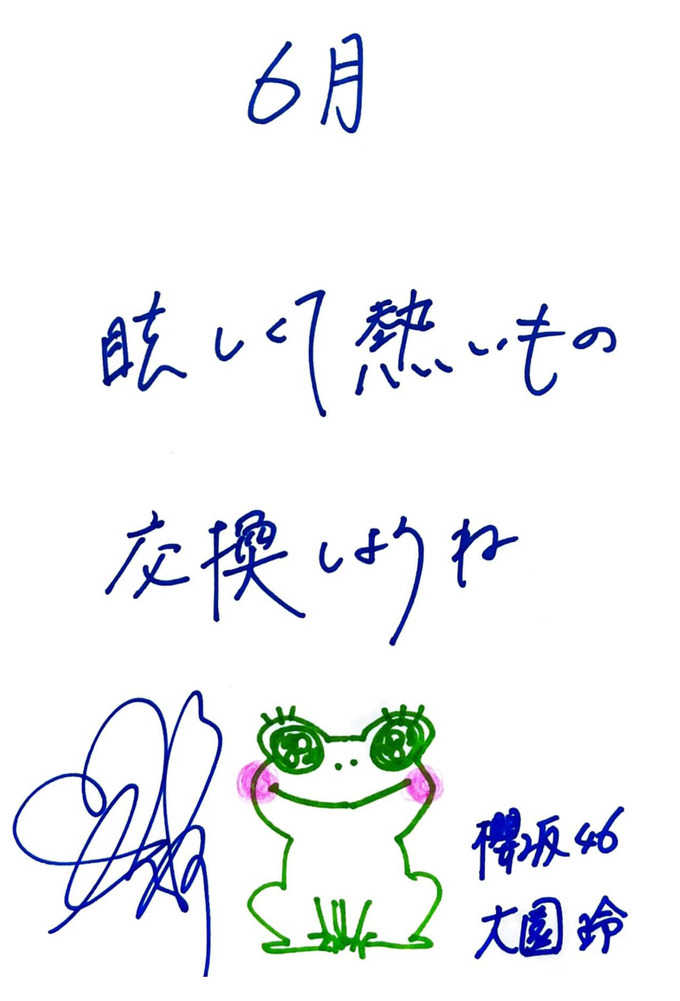 6月
眩しくて熱いもの
交換しようね
櫻坂46
大園玲